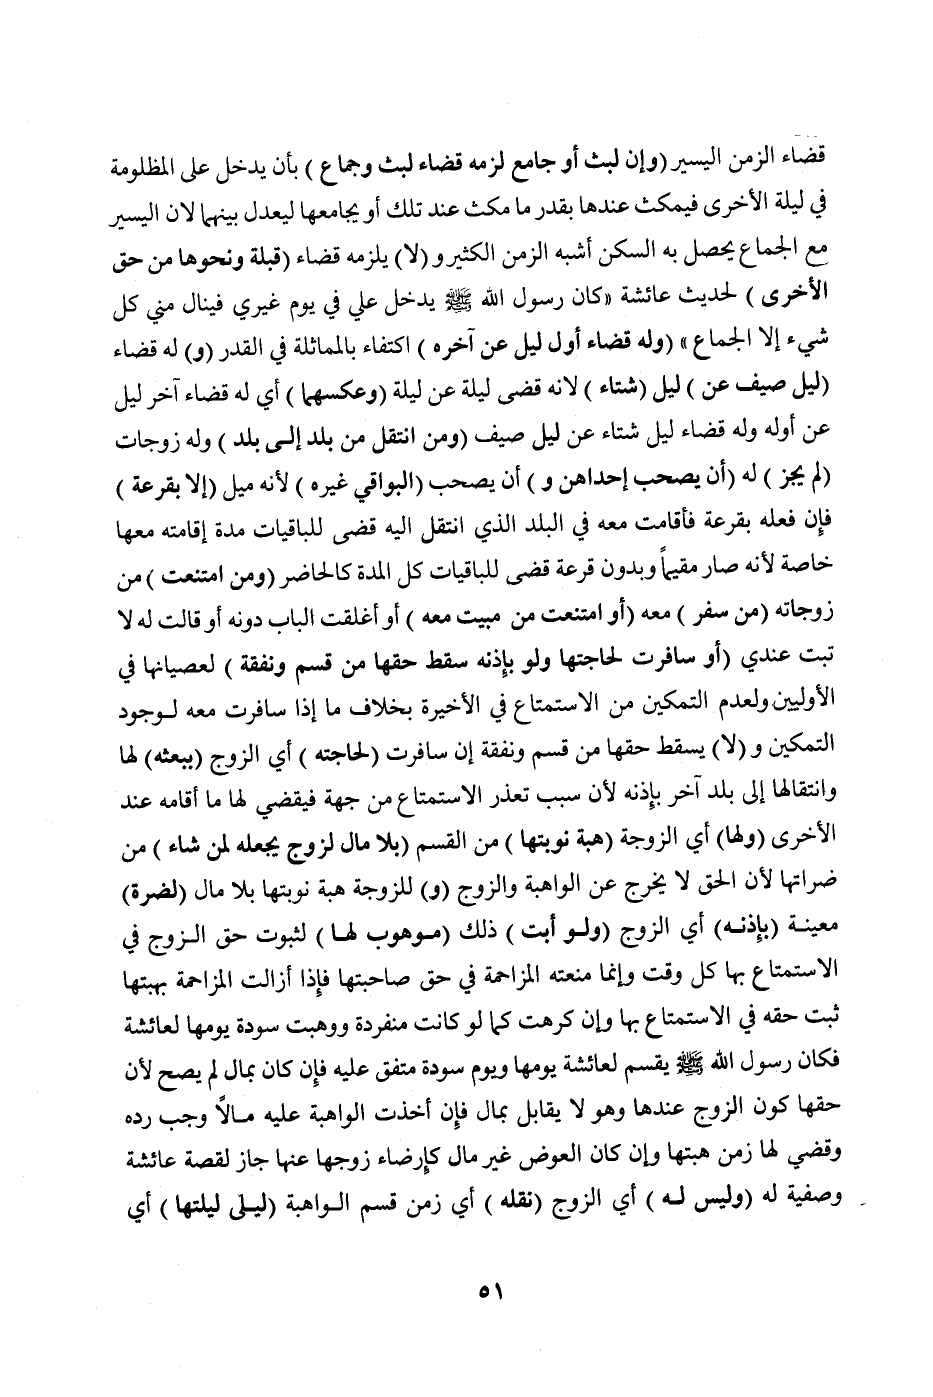 قضاء الزمن اليسير (وإن لبث أو جامع لزمه قضاء لبث وجماع ) بأن يدخل على المظلومة
في ليلة الأخرى فيمكث عندها بقدر ما مكث عند تلك أو يجامعها ليعدل بينهما لان اليسير
مع الجماع يحصل به السكن أشبه الزمن الكثير و (لا) يلزمه قضاء (قبلة ونحوها من حق
الأخرى ) لحديث عائشة «كان رسول الله ﷺ يدخل علي في يوم غيري فينال مني كل
شيء إلا الجماع» (وله قضاء أول ليل عن آخره ) اكتفاء بالمماثلة في القدر (و) له قضاء
(ليل صيف عن ) ليل (شتاء ) لانه قضى ليلة عن ليلة (وعكسهما ) أي له قضاء آخر ليل
عن أوله وله قضاء ليل شتاء عن ليل صيف (ومن انتقل من بلد إلى بلد ) وله زوجات
(لم يجز ) له (أن يصحب إحداهن و ) أن يصحب (البواقي غيره ) لأنه ميل (إلا بقرعة )
فإن فعله بقرعة فأقامت معه في البلد الذي انتقل اليه قضى للباقيات مدة إقامته معها
خاصة لأنه صار مقيماً وبدون قرعة قضى للباقيات كل المدة كالحاضر (ومن امتنعت ) من
زوجاته (من سفر ) معه (أو امتنعت من مبيت معه ) أو أغلقت الباب دونه أو قالت له لا
تبت عندي (أو سافرت لحاجتها ولو بإذنه سقط حقها من قسم ونفقة ) لعصيانها في
الأوليين ولعدم التمكين من الاستمتاع في الأخيرة بخلاف ما إذا سافرت معه لوجود
التمكين و (لا) يسقط حقها من قسم ونفقة إن سافرت (لحاجته ) أي الزوج (ببعثه) لها
وانتقالها إلى بلد آخر بإذنه لأن سبب تعذر الاستمتاع من جهة فيقضي لها ما أقامه عند
الأخرى (ولها) أي الزوجة (هبة نوبتها ) من القسم (بلا مال لزوج يجعله لمن شاء ) من
ضراتها لأن الحق لا يخرج عن الواهبة والزوج (و) للزوجة هبة نوبتها بلا مال (لضرة)
معينة (بإذنه) أي الزوج (ولو أبت ) ذلك (موهوب لها ) لثبوت حق الزوج في
الاستمتاع بها كل وقت وإنما منعته المزاحمة في حق صاحبتها فإذا أزالت المزاحمة بهبتها
ثبت حقه في الاستمتاع بها وإن كرهت كما لو كانت منفردة ووهبت سودة يومها لعائشة
فكان رسول الله ﷺ يقسم لعائشة يومها ويوم سودة متفق عليه فإن كان بمال لم يصح لأن
حقها كون الزوج عندها وهو لا يقابل بمال فإن أخذت الواهبة عليه مالاً وجب رده
وقضي لها زمن هبتها وإن كان العوض غير مال كإرضاء زوجها عنها جاز لقصة عائشة
وصفية له (وليس له ) أي الزوج (نقله ) أي زمن قسم الواهبة (ليلى ليلتها ) أي
٥١